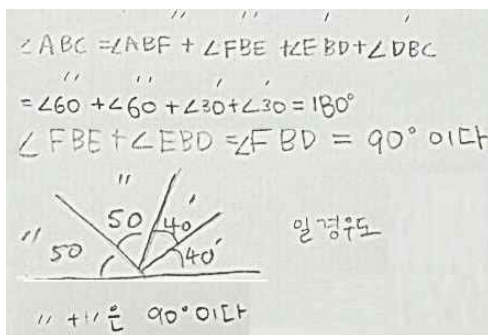 " " ' '
∠ABC = ∠ABF + ∠FBE + ∠EBD + ∠DBC
" " ' '
= ∠60 + ∠60 + ∠30 + ∠30 = 180°
∠FBE + ∠EBD = ∠FBD = 90° 이다
" '
50 40 '
" 50 40 일 경우도
" + ' 은 90° 이다